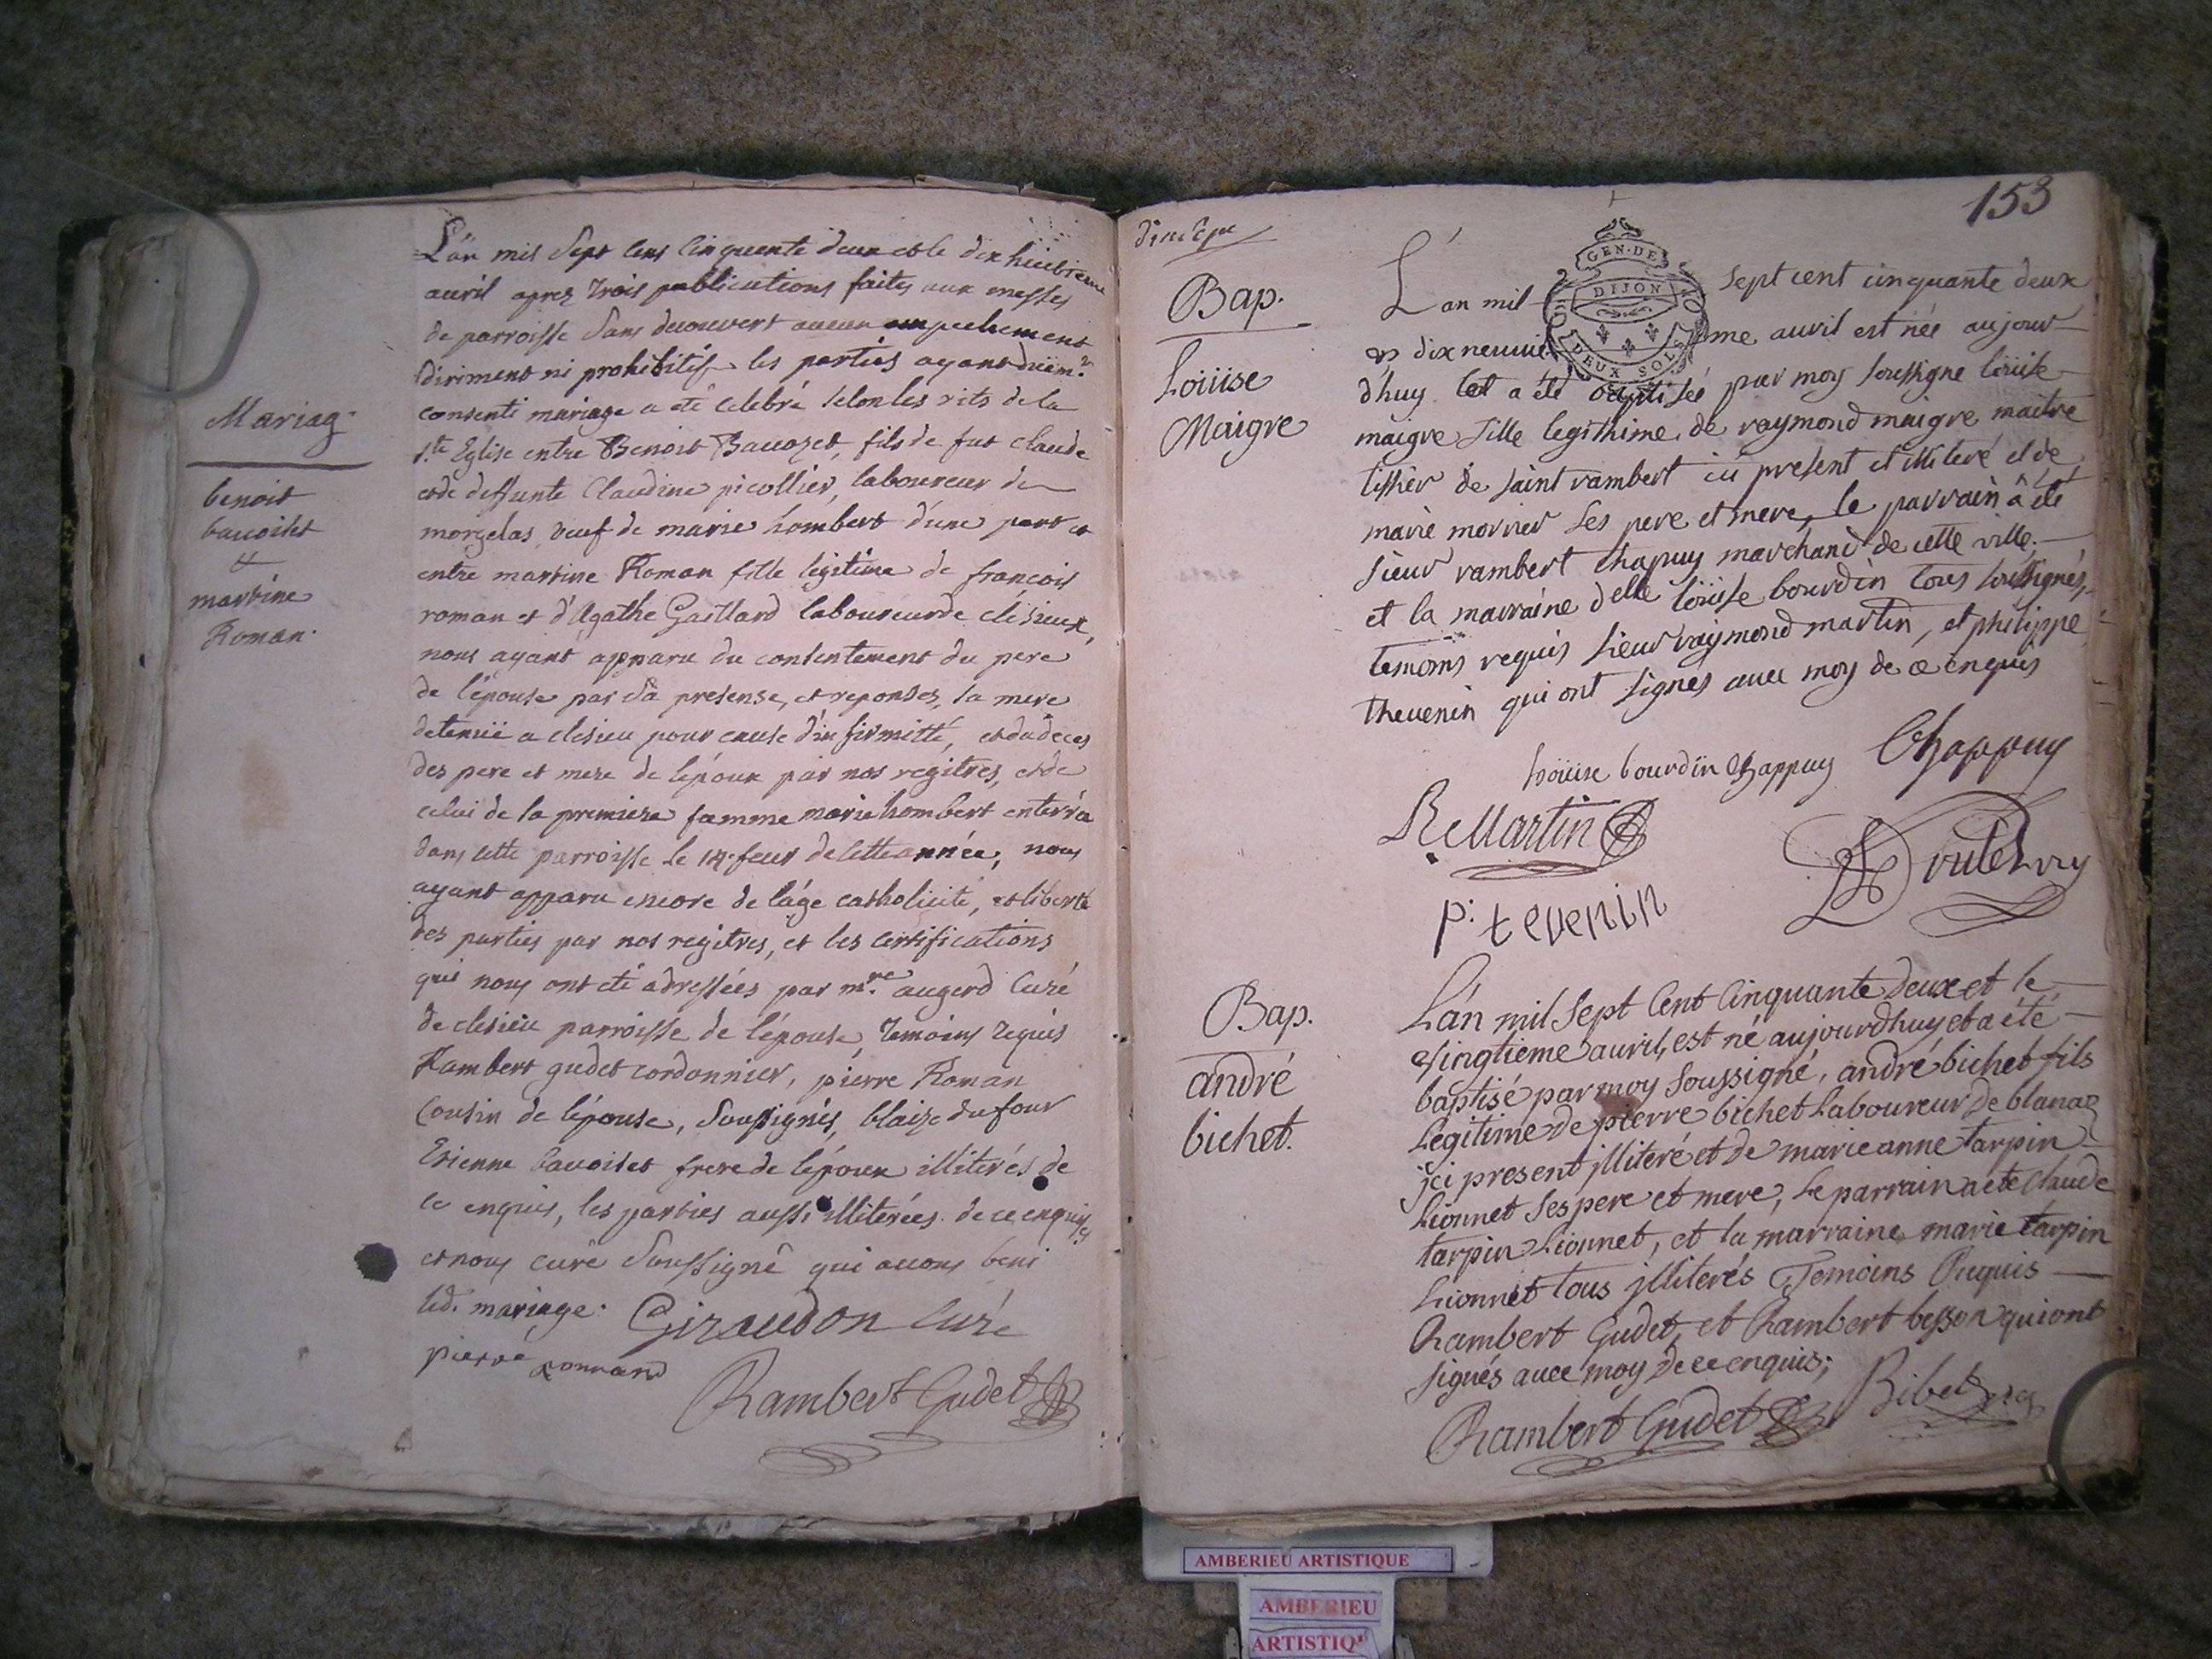 Mariag.
benoit
bauoiset
&
martine
Roman.
L'an mil Sept Cens Cinquente deux et le dix huitieme
auril apres trois publications faites aux messes
de parroisse Sans decouvert aucun empechement
diriment ni prohibitif, les parties ayant
consenti mariage a eté celebré selon les rits de la
Ste Eglise entre Benoit Bauozet, fils de fut Claude
et de deffunte Claudine picollier, laboureur de
morgelas veuf de marie hombert d'une part et
entre martine Roman fille legitime de françois
roman et d'Agathe Gaillard laboureur de clesieux,
nous ayant apparu du consentement du pere
de l'épouse par Sa presense, et reponses, la mere
detenuë a clesieu pour cause d'infirmitté, et du deces
des pere et mere de l'époux par nos regitres, et de
celui de la premiere famme marie hombert enterrée
dans cette parroisse le 14. feur de cette année, nous
ayant apparu encore de l'âge catholicité, et liberté
des parties par nos regitres, et les certifications
qui nous ont eté adressées par mre. augerd Curé
de clesieu parroisse de l'épouse, temoins requis
Rambert gudet cordonnier, pierre Roman
Cousin de l'épouse, Soussignés, blaize dufour
Etienne bauoiset frere de l'époux illiterés de
ce enquis, les parties aussi illiterées de ce enquises
et nous curé Soussigné qui auons beni
led. mariage. Giraudon Curé
pierre romand
Rambert Gudet
153
GEN. DE
DIJON
DEUX SOLS
Bap.
Loüise
Maigre
L'an mil sept cent cinquante deux
et dix neuuieme auvril est née aujour
d'huy et a été baptisée par moy soussigne loüise
maigre fille legithime de raymond maigre maitre
tissier de saint rambert ici present et illiteré et de
marie morrier ses pere et mere, le parrain â été
sieur rambert Chapuy marchand de cette ville.
et la marraine delle loüise bourdin tous soussignés,
temoins requis sieur raymond martin, et philippe
theuenin qui ont signes auec moy de ce enquis
Loüise bourdin Chappuy Chappuy
R Martin
P. tevenin
Bap.
andré
bichet.
L'an mil Sept Cent Cinquante deux et le
vingtieme auril, est né aujourdhuy et a été
baptisé par moy Soussigné, andré bichet fils
Legitime de pierre bichet Laboureur de blanaz
jci present jlliteré et de marie anne tarpin
Lionnet Ses pere et mere, Le parrain a eté Claude
tarpin Lionnet, et la marraine marie tarpin
Lionnet tous jlliterés Temoins Requis
Rambert Gudet, et Rambert besson qui ont
signés auec moy de ce enquis;
Rambert Gudet
AMBERIEU ARTISTIQUE
AMBERIEU
ARTISTIQ